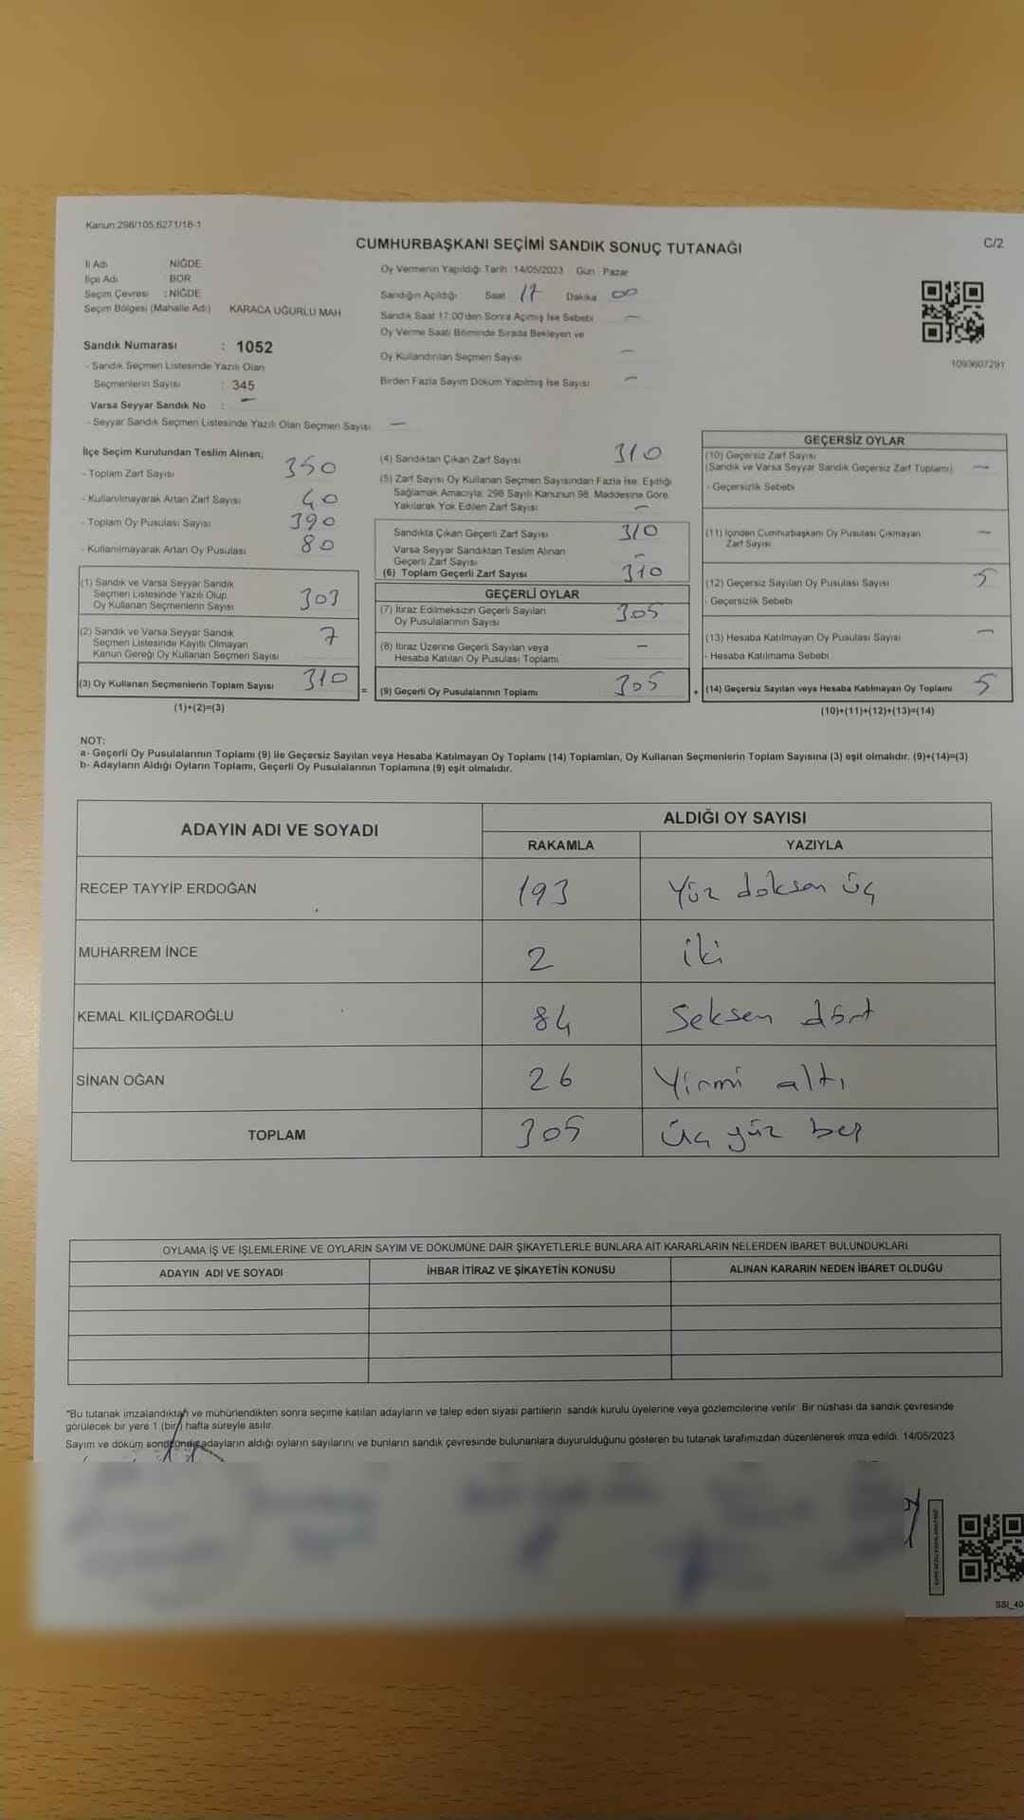 Kanun:298/105,6271/16-1
CUMHURBAŞKANI SEÇİMİ SANDIK SONUÇ TUTANAĞI
C/2
İl Adı NİĞDE
İlçe Adı BOR
Seçim Çevresi : NİĞDE
Seçim Bölgesi (Mahalle Adı) KARACA UĞURLU MAH
Sandık Numarası : 1052
- Sandık Seçmen Listesinde Yazılı Olan
Seçmenlerin Sayısı : 345
Varsa Seyyar Sandık No : -
- Seyyar Sandık Seçmen Listesinde Yazılı Olan Seçmen Sayısı -
Oy Vermenin Yapıldığı Tarih : 14/05/2023 Gün : Pazar
Sandığın Açıldığı Saat 17 Dakika 00
Sandık Saat 17:00'den Sonra Açılmış İse Sebebi -
Oy Verme Saati Bitiminde Sırada Bekleyen ve
Oy Kullandırılan Seçmen Sayısı -
Birden Fazla Sayım Döküm Yapılmış İse Sayısı -
1093607291
İlçe Seçim Kurulundan Teslim Alınan;
- Toplam Zarf Sayısı 350
- Kullanılmayarak Artan Zarf Sayısı 40
- Toplam Oy Pusulası Sayısı 390
- Kullanılmayarak Artan Oy Pusulası 80
(1) Sandık ve Varsa Seyyar Sandık
Seçmen Listesinde Yazılı Olup
Oy Kullanan Seçmenlerin Sayısı 303
(2) Sandık ve Varsa Seyyar Sandık
Seçmen Listesinde Kayıtlı Olmayan
Kanun Gereği Oy Kullanan Seçmen Sayısı 7
(3) Oy Kullanan Seçmenlerin Toplam Sayısı 310
(1)+(2)=(3)
(4) Sandıktan Çıkan Zarf Sayısı 310
(5) Zarf Sayısı Oy Kullanan Seçmen Sayısından Fazla İse, Eşitliği
Sağlamak Amacıyla, 298 Sayılı Kanunun 98. Maddesine Göre
Yakılarak Yok Edilen Zarf Sayısı -
Sandıkta Çıkan Geçerli Zarf Sayısı 310
Varsa Seyyar Sandıktan Teslim Alınan
Geçerli Zarf Sayısı -
(6) Toplam Geçerli Zarf Sayısı 310
GEÇERLİ OYLAR
(7) İtiraz Edilmeksizin Geçerli Sayılan
Oy Pusulalarının Sayısı 305
(8) İtiraz Üzerine Geçerli Sayılan veya
Hesaba Katılan Oy Pusulası Toplamı -
= (9) Geçerli Oy Pusulalarının Toplamı 305
GEÇERSİZ OYLAR
(10) Geçersiz Zarf Sayısı
(Sandık ve Varsa Seyyar Sandık Geçersiz Zarf Toplamı) -
- Geçersizlik Sebebi
(11) İçinden Cumhurbaşkanı Oy Pusulası Çıkmayan
Zarf Sayısı -
(12) Geçersiz Sayılan Oy Pusulası Sayısı 5
- Geçersizlik Sebebi
(13) Hesaba Katılmayan Oy Pusulası Sayısı -
- Hesaba Katılmama Sebebi
+ (14) Geçersiz Sayılan veya Hesaba Katılmayan Oy Toplamı 5
(10)+(11)+(12)+(13)=(14)
NOT:
a- Geçerli Oy Pusulalarının Toplamı (9) ile Geçersiz Sayılan veya Hesaba Katılmayan Oy Toplamı (14) Toplamları, Oy Kullanan Seçmenlerin Toplam Sayısına (3) eşit olmalıdır. (9)+(14)=(3)
b- Adayların Aldığı Oyların Toplamı, Geçerli Oy Pusulalarının Toplamına (9) eşit olmalıdır.
ADAYIN ADI VE SOYADI
ALDIĞI OY SAYISI
RAKAMLA YAZIYLA
RECEP TAYYİP ERDOĞAN 193 Yüz doksan üç
MUHARREM İNCE 2 iki
KEMAL KILIÇDAROĞLU 84 Seksen dört
SİNAN OĞAN 26 Yirmi altı
TOPLAM 305 Üç yüz beş
OYLAMA İŞ VE İŞLEMLERİNE VE OYLARIN SAYIM VE DÖKÜMÜNE DAİR ŞİKAYETLERLE BUNLARA AİT KARARLARIN NELERDEN İBARET BULUNDUKLARI
ADAYIN ADI VE SOYADI İHBAR İTİRAZ VE ŞİKAYETİN KONUSU ALINAN KARARIN NEDEN İBARET OLDUĞU
"Bu tutanak imzalandıktan ve mühürlendikten sonra seçime katılan adayların ve talep eden siyasi partilerin sandık kurulu üyelerine veya gözlemcilerine verilir. Bir nüshası da sandık çevresinde
görülecek bir yere 1 (bir) hafta süreyle asılır.
Sayım ve döküm sonucunda adayların aldığı oyların sayılarını ve bunların sandık çevresinde bulunanlara duyurulduğunu gösteren bu tutanak tarafımızdan düzenlenerek imza edildi. 14/05/2023
SSI_40